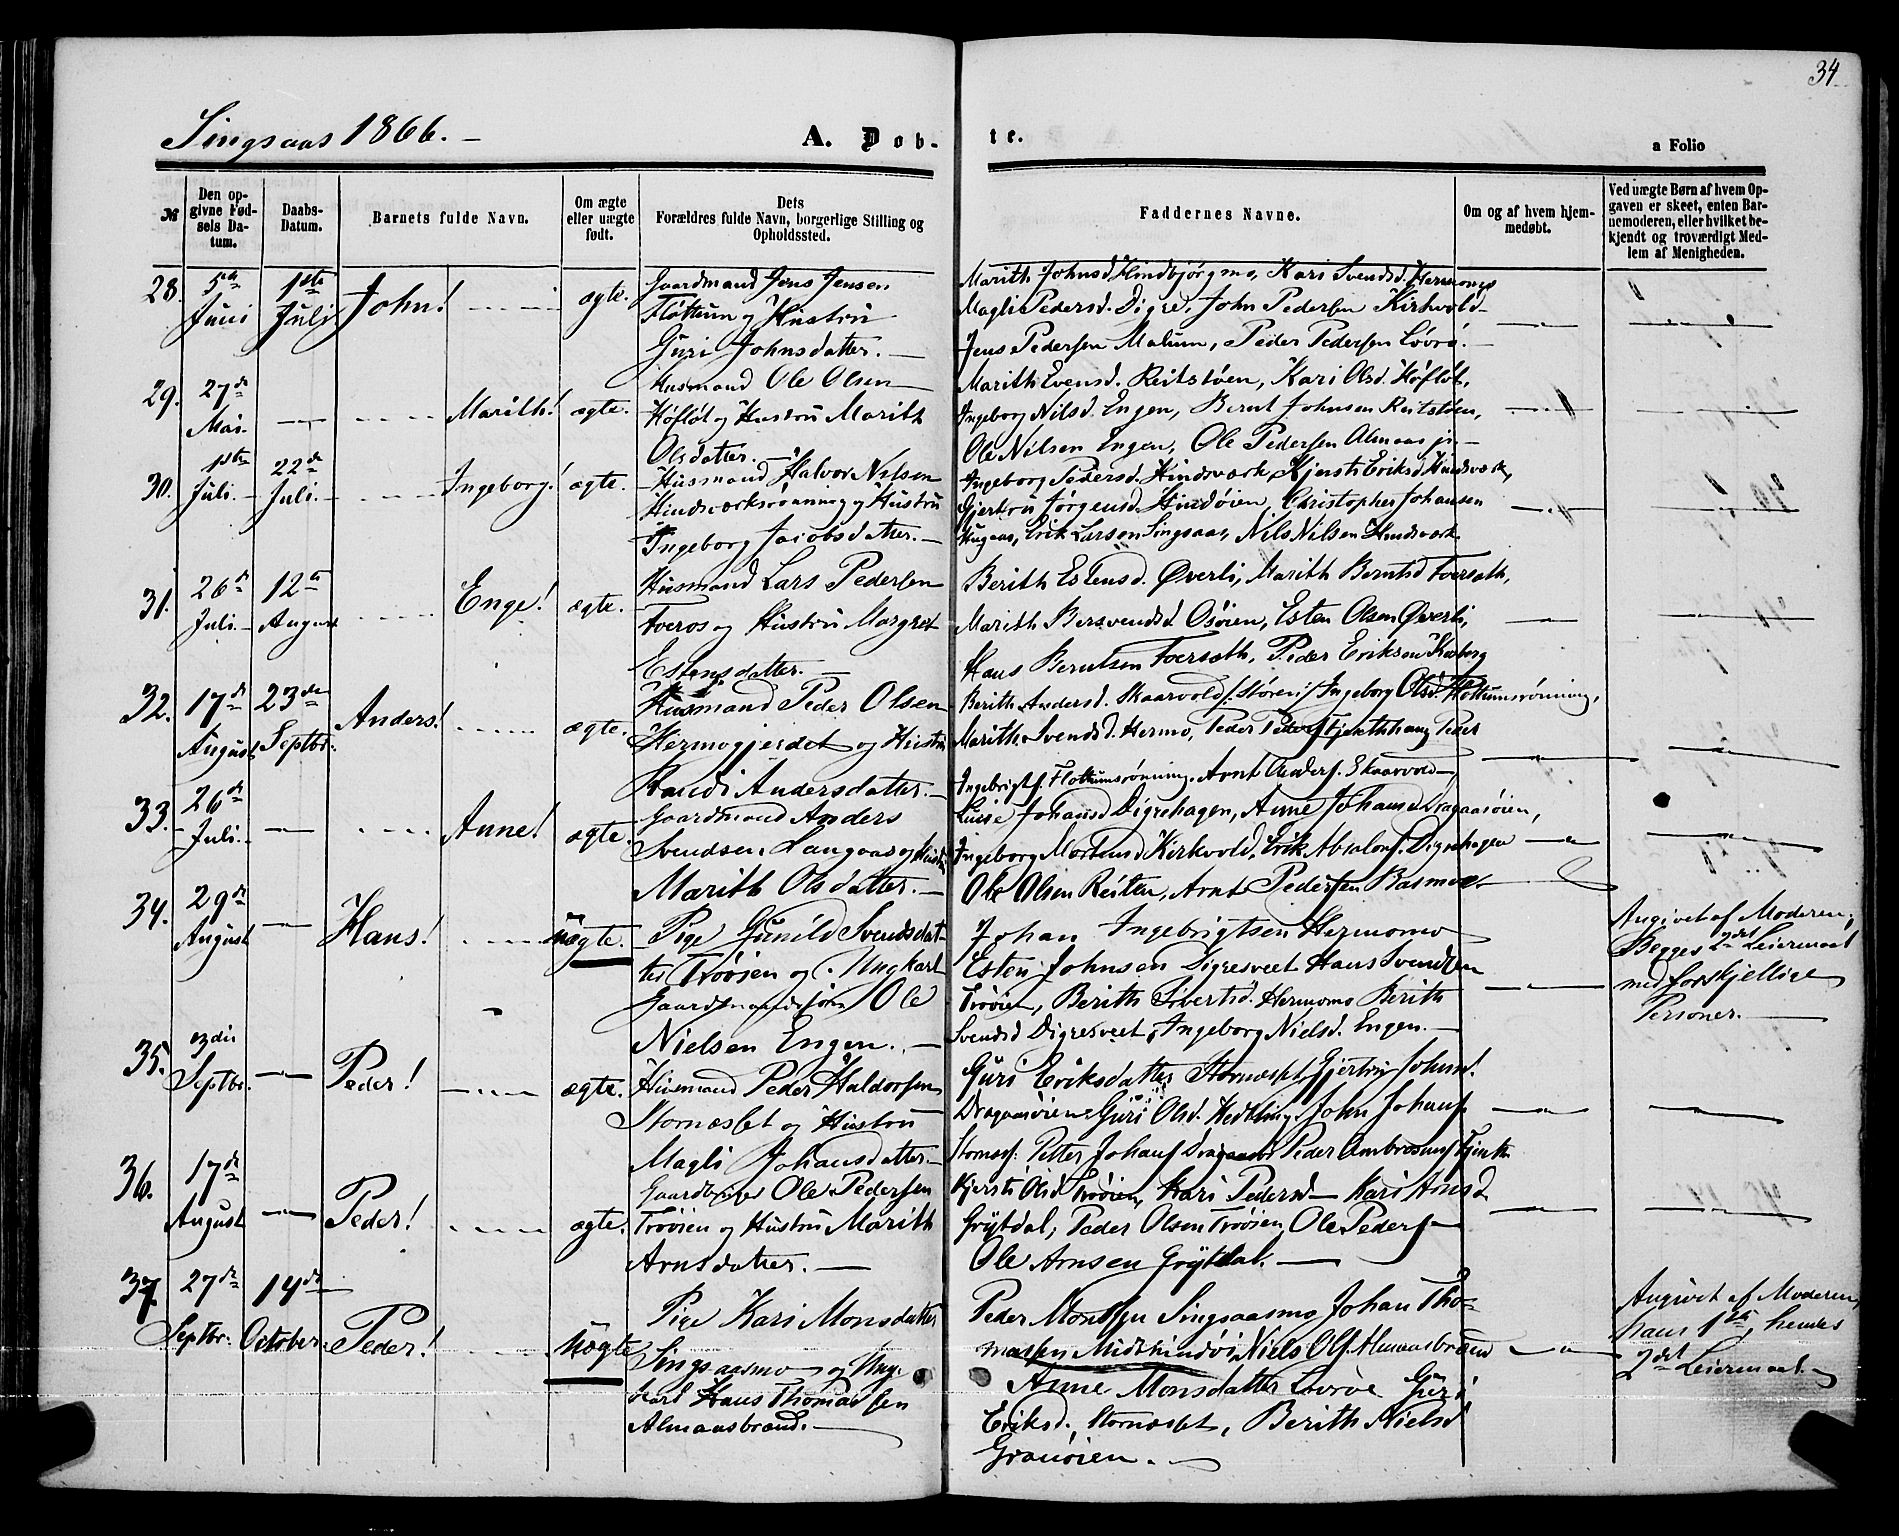 34
Singsaas 1866. -
A. Døb-
te.
a Folio
№
Den op-
givne Fød-
sels Da-
tum.
Daabs-
Datum.
Barnets fulde Navn.
Om ægte
eller uægte
født.
Dets
Forældres fulde Navn, borgerlige Stilling og
Opholdssted.
Faddernes Navne.
Om og af hvem hjem-
medøbt.
Ved uægte Børn af hvem Op-
gaven er skeet, enten Bar-
nemoderen, eller hvilket be-
kjendt og troværdigt Med-
lem af Menigheden.
28. 5te Juni
1ste Juli
John!
ægte.
Gaardmand Jens Jensen
Fløttum og Hustru
Guri Johnsdatter. —
Marith Johnsd. Hindbjørgmo, Kari Svendsd. Hermomo
Magli Pedersd. Digre, John Pedersen Kirkvold
Jens Pedersen Malum, Peder Pedersen Løvrø. —
29. 27de Mai
Marith!
ægte.
Husmand Ole Olsen
Høfløt og Hustru Marith
Olsdatter. —
Marith Evensd. Reitstøen, Kari Olsd. Høfløt,
Ingeborg Nilsd. Engen, Bernt Johnsen Reitstøen,
Ole Nilsen Engen, Ole Pedersen Almaas jr. —
30. 1ste Juli.
22de Juli.
Ingeborg!
ægte.
Husmand Halvor Nilsen
Hindsværksrønning og Hustru
Ingeborg Jacobsdatter. —
Ingeborg Pedersd. Hindsværk, Kjersti Eriksd. Hindsværk,
Gjertru Jørgensd. Hindøien, Christopher Johansen
Hugaas, Erik Larsen Singsaas, Nils Nilsen Hindsværk
31. 26de Juli.
12te August
Enge!
ægte.
Husmand Lars Pedersen
Foeros og Hustru Margret
Estensdatter. —
Berith Estensd. Øverli, Marith Berntsd. Forsæth,
Marith Bersvendsd. Osøien, Esten Olsen Øverli,
Hans Berntsen Forsæth, Peder Eriksen
32. 17de August
23de Septbr.
Anders!
ægte.
Husmand Peder Olsen
Hermogjerdet og Hustru
Randi Andersdatter. —
Berith Andersd. Skaarvold /: Støren :/ Ingeborg Olsd. Fløttumsrønning,
Marith Svendsd. Hermo, Peder Peders. Fjeratthaug Peder
Ingebrigts. Fløttumsrønning, Arnt Anders. Skaarvold —
33. 26de Juli.
Anne!
ægte.
Gaardmand Anders
Svendsen Langaas og Hustru
Marith Olsdatter. —
Lusse Johansd Digrehagen, Anne Johansd Dragaasøien,
Ingeborg Mortensd Kirkvold, Erik Absalons. Digrehagen
Ole Olsen Reiten, Arnt Pedersen Basmoe
34. 29de August
Hans!
uægte.
Pige Gunild Svendsdat-
ter Trøøien og Ungkarl
Gaardmandssøn Ole
Nielsen Engen. —
Johan Ingebrigtsen Hermomo
Esten Johnsen Digresveet Hans Svendsen
Trøøien, Berith Sivertsd. Hermomo Berith
Svendsd Digresveet, Ingeborg Nielsd. Engen. —
Angivet af Moderen;
Begges 2det Leiermaal
med forskjellige
Personer. —
35. 3die Septbr.
Peder!
ægte.
Husmand Peder Haldorsen
Stornæset og Hustru
Magli Johansdatter —
Guri Eriksdatter Stornæset, Gjertru Johnsd.
Dragaasøien, Guri Olsd. Hedtling, John Johans.
Stornæs: Petter Johans Dragaas Peder Ambrosius
36. 17de August
Peder!
ægte.
Gaardbruger Ole Pedersen
Trøøien og Hustru Marith
Arnsdatter. —
Kjersti Olsd Trøøien, Kari Pedersd — Kari Arnsd
Grytdal, Peder Olsen Trøøien, Ole Peders —
Ole Arnsen Grytdal. —
37. 27de Septbr.
14de October
Peder!
uægte
Pige Kari Monsdatter
Singsaasmo og Ung-
karl Hans Thomassen
Almaasbrænd. —
Peder Monssen Singsaasmo Johan Tho-
massen Midthindøi, Niels Ols. Almaasbrøen
Anne Monsdatter Løvrøe Guri
Eriksd. Stornæset, Berith Nielsd
Granøien. —
Angivet af Moderen,
hans 1ste, hendes
2det Leiermaal. —